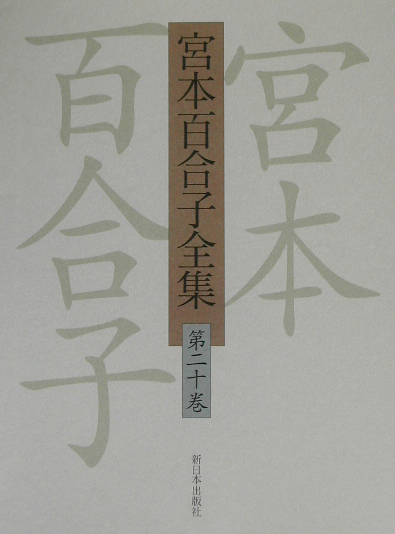 宮本
百合子
宮本百合子全集
第二十巻
新日本出版社